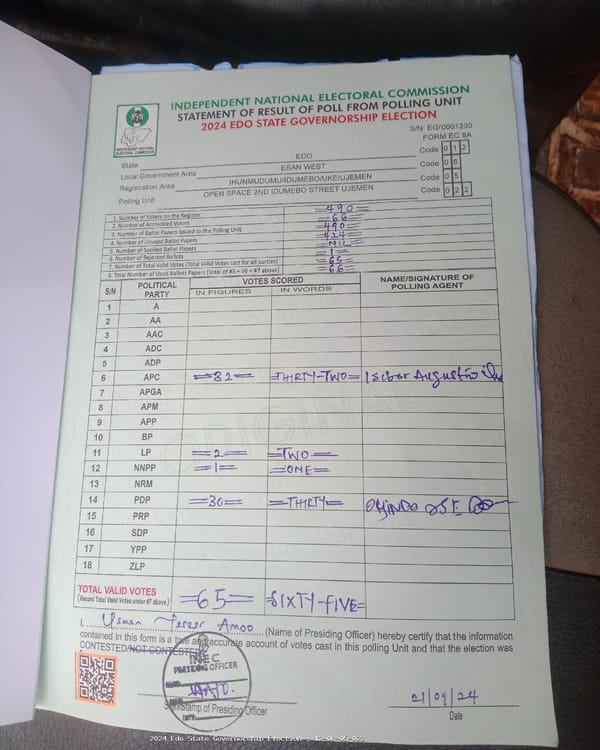 INDEPENDENT NATIONAL ELECTORAL COMMISSION
STATEMENT OF RESULT OF POLL FROM POLLING UNIT
2024 EDO STATE GOVERNORSHIP ELECTION
S/N EG/0001230
FORM EC 8A
INEC
INDEPENDENT NATIONAL ELECTORAL COMMISSION
State EDO Code 0 1 2
Local Government Area ESAN WEST Code 0 6
Registration Area IHUNMUDUMU/IDUMEBO/UKE/UJEMEN Code 0 5
Polling Unit OPEN SPACE 2ND IDUMEBO STREET UJEMEN Code 0 2 2
1. Number of Voters on the Register =490=
2. Number of Accredited Voters =66=
3. Number of Ballot Papers Issued to the Polling Unit =490=
4. Number of Unused Ballot Papers =424=
5. Number of Spoiled Ballot Papers =NIL=
6. Number of Rejected Ballots =1=
7. Number of Total Valid Votes (Total Valid Votes cast for all parties) =65=
8. Total Number of Used Ballots Papers (Total of #5 + #6 + #7 above) =66=
S/N POLITICAL PARTY VOTES SCORED NAME/SIGNATURE OF POLLING AGENT
IN FIGURES IN WORDS
1 A
2 AA
3 AAC
4 ADC
5 ADP
6 APC =32= =THIRTY-TWO= Augustine
7 APGA
8 APM
9 APP
10 BP
11 LP =2= =TWO=
12 NNPP =1= =ONE=
13 NRM
14 PDP =30= =THIRTY=
15 PRP
16 SDP
17 YPP
18 ZLP
ORIGINAL
TOTAL VALID VOTES =65= =SIXTY-FIVE=
(Record Total Valid Votes under #7 above)
I, Usman Amoo (Name of Presiding Officer) hereby certify that the information
contained in this form is a true and accurate account of votes cast in this polling Unit and that the election was
CONTESTED/NOT CONTESTED
INEC
PRESIDING OFFICER
DATE
Stamp of Presiding Officer
21/09/24
Date
2024 Edo State Governorship Election - 12-06-05-022